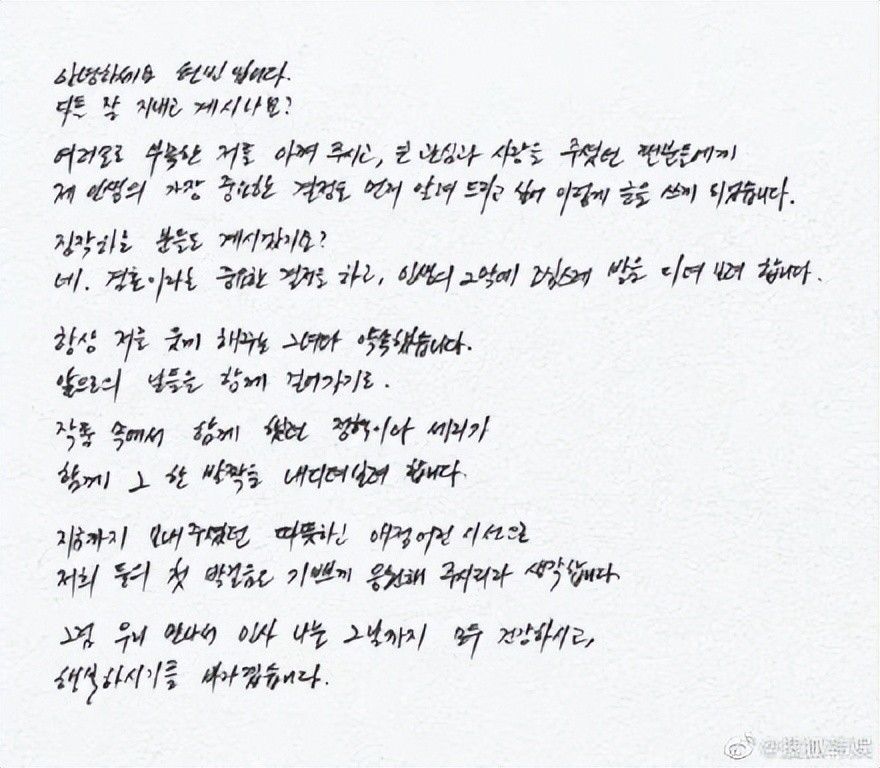 안녕하세요 현빈입니다.
다들 잘 지내고 계시나요?
여러모로 부족한 저를 아껴 주시고, 큰 관심과 사랑을 주셨던 팬분들에게
제 인생의 가장 중요한 결정을 먼저 알려 드리고 싶어 이렇게 글을 쓰게 되었습니다.
짐작하는 분들도 계시겠지요?
네. 결혼이라는 중요한 결정을 하고, 인생의 2막에 조심스레 발을 디뎌 보려 합니다.
항상 저를 웃게 해주는 그녀와 약속했습니다.
앞으로의 날들을 함께 걸어가기로.
작품 속에서 함께 했던 정혁이와 세리가
함께 그 한 발짝을 내디뎌보려 합니다.
지금까지 보내주셨던 따뜻하신 애정어린 시선으로
저희 둘의 첫 발걸음도 기쁘게 응원해 주시리라 생각합니다
그럼 우리 만나서 인사 나눌 그날까지 모두 건강하시고,
행복하시기를 바라겠습니다.
@搜狐韩娱